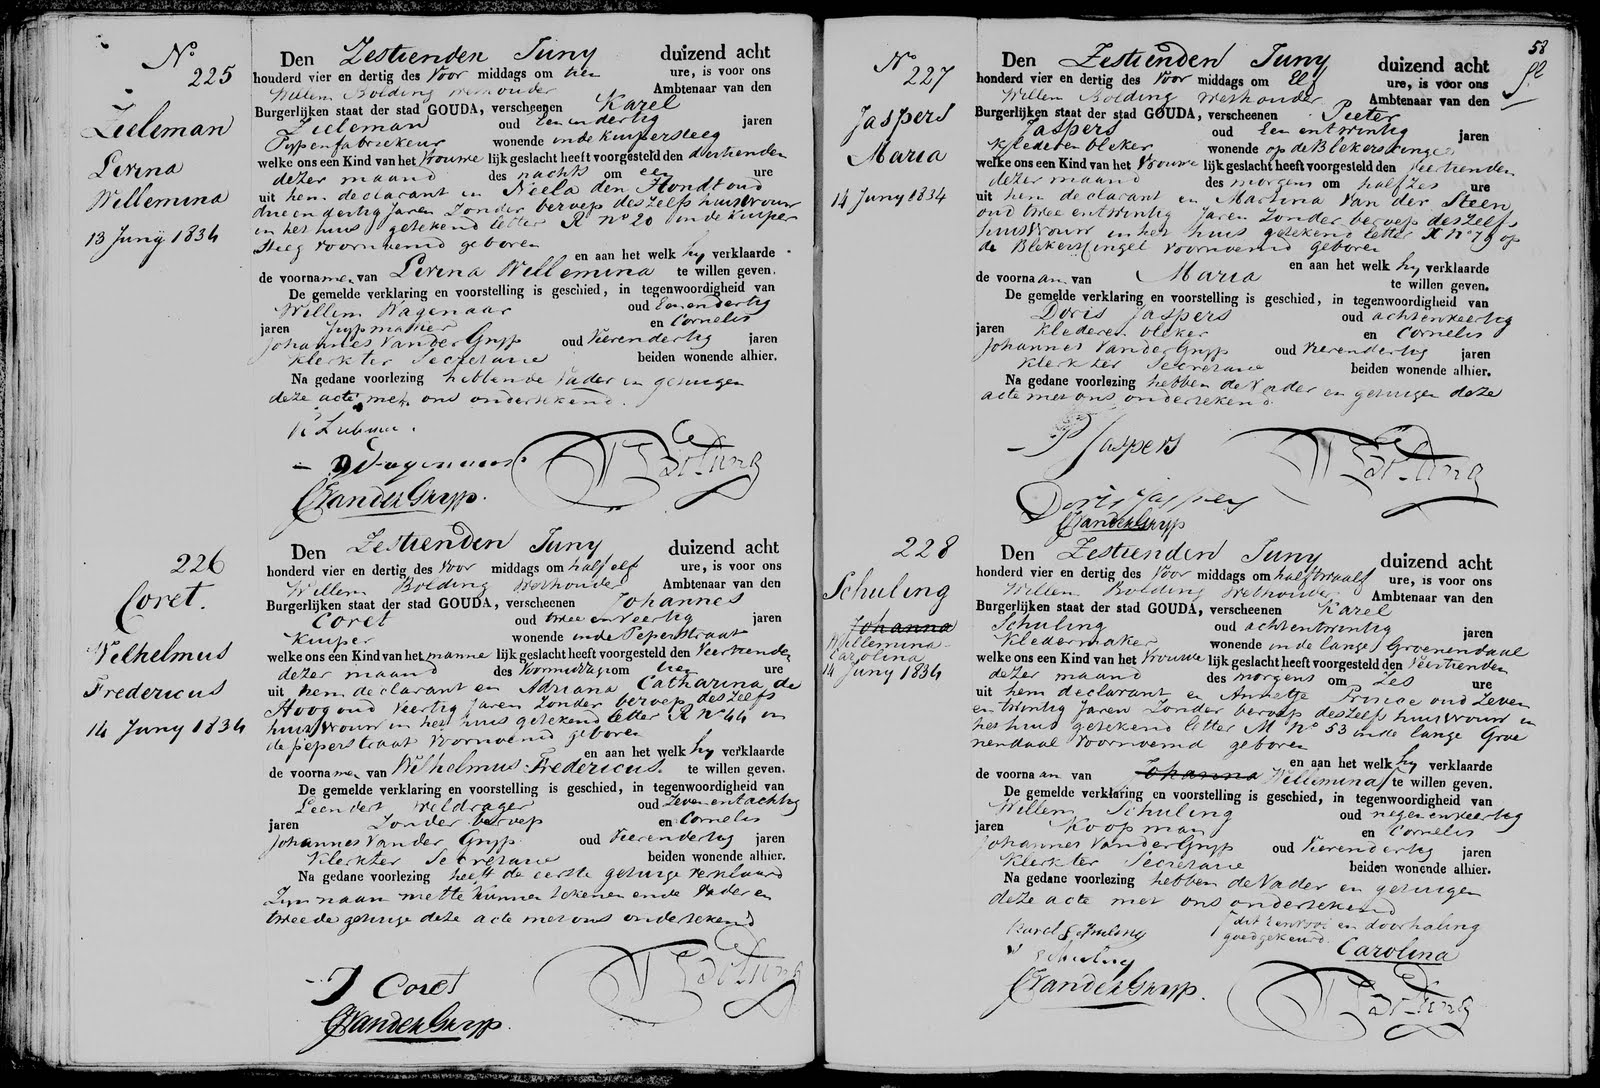 No
225
Zieleman
Perina
Willemina
13 Juny 1834
Den Zestienden Juny duizend acht
honderd vier en dertig des Voor middags om tien ure, is voor ons
Willem Bolding Wethouder Ambtenaar van den
Burgerlijken staat der stad GOUDA, verscheenen Karel
Zieleman oud Eenendertig jaren
Pypenfabriekeur wonende inde Kuipersteeg
welke ons een Kind van het Vrouwe lijk geslacht heeft voorgesteld den dertienden
dezer maand des nachts om een ure
uit hem declarant en Neela den Hondt oud
drie en dertig Jaren Zonder beroep deszelfs huisvrouw
in het huis getekend letter R No 20 in de Kuiper
steeg voornoemd geboren
en aan het welk hy verklaarde
de voornamen van Perina Willemina te willen geven.
De gemelde verklaring en voorstelling is geschied, in tegenwoordigheid van
Willem Wagenaar oud Eenendertig
jaren Pypmaker en Cornelis
Johannes Van der Gryp oud Vierendertig jaren
Klerk ter Secretarie beiden wonende alhier.
Na gedane voorlezing hebben de Vader en getuigen
deze acte met ons ondertekend.
W Wagenaar
CJVanderGryp.
W Bolding
226
Coret.
Wilhelmus
Fredericus
14 Juny 1834
Den Zestienden Juny duizend acht
honderd vier en dertig des Voor middags om half elf ure, is voor ons
Willem Bolding Wethouder Ambtenaar van den
Burgerlijken staat der stad GOUDA, verscheenen Johannes
Coret oud twee en Veertig jaren
Kuiper wonende inde Peperstraat
welke ons een Kind van het manne lijk geslacht heeft voorgesteld den Veertienden
dezer maand des Voormiddags om tien ure
uit hem declarant en Adriana Catharina de
Hoog oud Veertig Jaren Zonder beroep deszelfs
huisvrouw in het huis getekend letter R No 44 in
de peperstraat Voornoemd geboren
en aan het welk hy verklaarde
de voornamen van Wilhelmus Fredericus. te willen geven.
De gemelde verklaring en voorstelling is geschied, in tegenwoordigheid van
Leendert Weldrager oud Zevenentachtig
jaren Zonder beroep en Cornelis
Johannes Van der Gryp. oud Vierendertig jaren
Klerk ter Secretarie beiden wonende alhier.
Na gedane voorlezing heeft de eerste getuige verklaard
Zyn naam niet te kunnen tekenen en de Vader en
tweede getuige deze acte met ons ondertekend
J Coret
CJVanderGryp.
W Bolding
58
No
227
Jaspers
Maria
14 Juny 1834
Den Zestienden Juny duizend acht
honderd vier en dertig des Voor middags om Elf ure, is voor ons
Willem Bolding Wethouder Ambtenaar van den
Burgerlijken staat der stad GOUDA, verscheenen Peeter
Jaspers oud Een en twintig jaren
Klederen bleker wonende op de Blekerssingel
welke ons een Kind van het Vrouwe lijk geslacht heeft voorgesteld den Veertienden
dezer maand des morgens om half zes ure
uit hem declarant en Martina Van der Steen
oud twee entwintig Jaren Zonder beroep deszelfs
huisvrouw in het huis getekend letter X No 79 op
de Blekerssingel voornoemd geboren
en aan het welk hy verklaarde
de voornaam van Maria te willen geven.
De gemelde verklaring en voorstelling is geschied, in tegenwoordigheid van
Doris Jaspers oud achtenveertig
jaren klederen bleker en Cornelis
Johannes Van der Gryp oud Vierendertig jaren
Klerk ter Secretarie beiden wonende alhier.
Na gedane voorlezing hebben de Vader en getuigen deze
acte met ons ondertekend.
P Jaspers
W Bolding
Doris Jaspers
CJVanderGryp
228
Schuling
Johanna
Willemina
Carolina
14 Juny 1834
Den Zestienden Juny duizend acht
honderd vier en dertig des Voor middags om half twaalf ure, is voor ons
Willem Bolding Wethouder Ambtenaar van den
Burgerlijken staat der stad GOUDA, verscheenen Karel
Schuling oud achtentwintig jaren
Kledermaker wonende in de lange Groenendaal
welke ons een Kind van het Vrouwe lijk geslacht heeft voorgesteld den Veertienden
dezer maand des morgens om Zes ure
uit hem declarant en Annette Prince oud Zeven
en twintig Jaren Zonder beroep deszelfs huisvrouw in
het huis getekend letter M No 53 in de lange Groe
nendaal Voornoemd geboren
en aan het welk hy verklaarde
de voornaam van Johanna Willemina te willen geven.
De gemelde verklaring en voorstelling is geschied, in tegenwoordigheid van
Willem Schuling oud negenenveertig
jaren Koopman en Cornelis
Johannes Van der Gryp oud Vierendertig jaren
Klerk ter Secretarie beiden wonende alhier.
Na gedane voorlezing hebben de Vader en getuigen
deze acte met ons ondertekend
en doorhaling
goedgekeurd. Carolina
Karel Schuling
Schuling
CJVanderGryp.
W Bolding